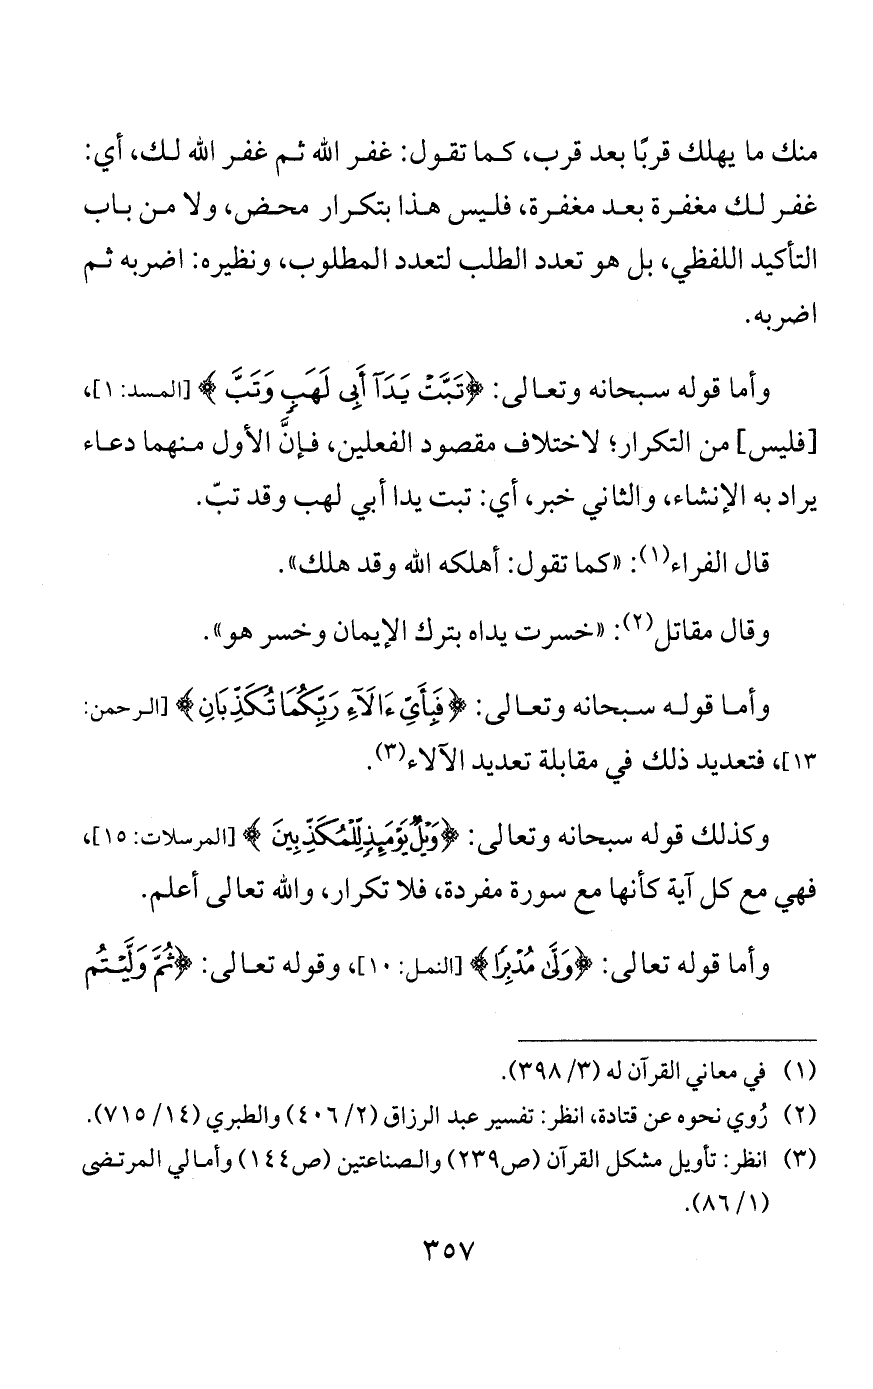 منك ما يهلك قربًا بعد قرب، كما تقول: غفر الله ثم غفر الله لك، أي:
غفر لك مغفرة بعد مغفرة، فليس هذا بتكرار محض، ولا من باب
التأكيد اللفظي، بل هو تعدد الطلب لتعدد المطلوب، ونظيره: اضربه ثم
اضربه.
وأما قوله سبحانه وتعالى: ﴿تَبَّتْ يَدَآ أَبِى لَهَبٍ وَتَبَّ﴾ [المسد: ١]،
[فليس] من التكرار؛ لاختلاف مقصود الفعلين، فإنَّ الأول منهما دعاء
يراد به الإنشاء، والثاني خبر، أي: تبت يدا أبي لهب وقد تبّ.
قال الفراء(١): «كما تقول: أهلكه الله وقد هلك».
وقال مقاتل(٢): «خسرت يداه بترك الإيمان وخسر هو».
وأما قوله سبحانه وتعالى: ﴿فَبِأَىِّ ءَالَآءِ رَبِّكُمَا تُكَذِّبَانِ﴾ [الرحمن:
١٣]، فتعديد ذلك في مقابلة تعديد الآلاء(٣).
وكذلك قوله سبحانه وتعالى: ﴿وَيْلٌ يَوْمَئِذٍ لِّلْمُكَذِّبِينَ﴾ [المرسلات: ١٥]،
فهي مع كل آية كأنها مع سورة مفردة، فلا تكرار، والله تعالى أعلم.
وأما قوله تعالى: ﴿وَلَّىٰ مُدْبِرًا﴾ [النمل: ١٠]، وقوله تعالى: ﴿ثُمَّ وَلَّيْتُم
(١) في معاني القرآن له (٣/ ٣٩٨).
(٢) رُوي نحوه عن قتادة، انظر: تفسير عبد الرزاق (٢/ ٤٠٦) والطبري (١٤/ ٧١٥).
(٣) انظر: تأويل مشكل القرآن (ص٢٣٩) والصناعتين (ص١٤٤) وأمالي المرتضى
(١/ ٨٦).
٣٥٧